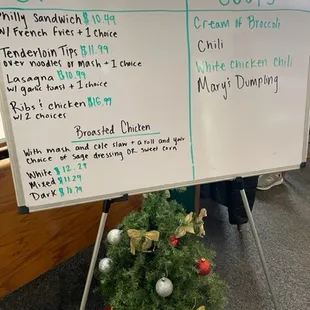 Philly Sandwich $10.49
w/ French Fries + 1 choice
Tenderloin Tips $11.99
over noodles or mash + 1 choice
Lasagna $10.99
w/ garlic toast + 1 choice
Ribs & chicken $16.99
w/ 2 choices
Broasted Chicken
With mash and cole slaw + a roll and your
choice of Sage dressing OR sweet corn
White $12.29
Mixed $11.29
Dark $11.79
Cream of Broccoli
Chili
White Chicken Chili
Mary's Dumpling